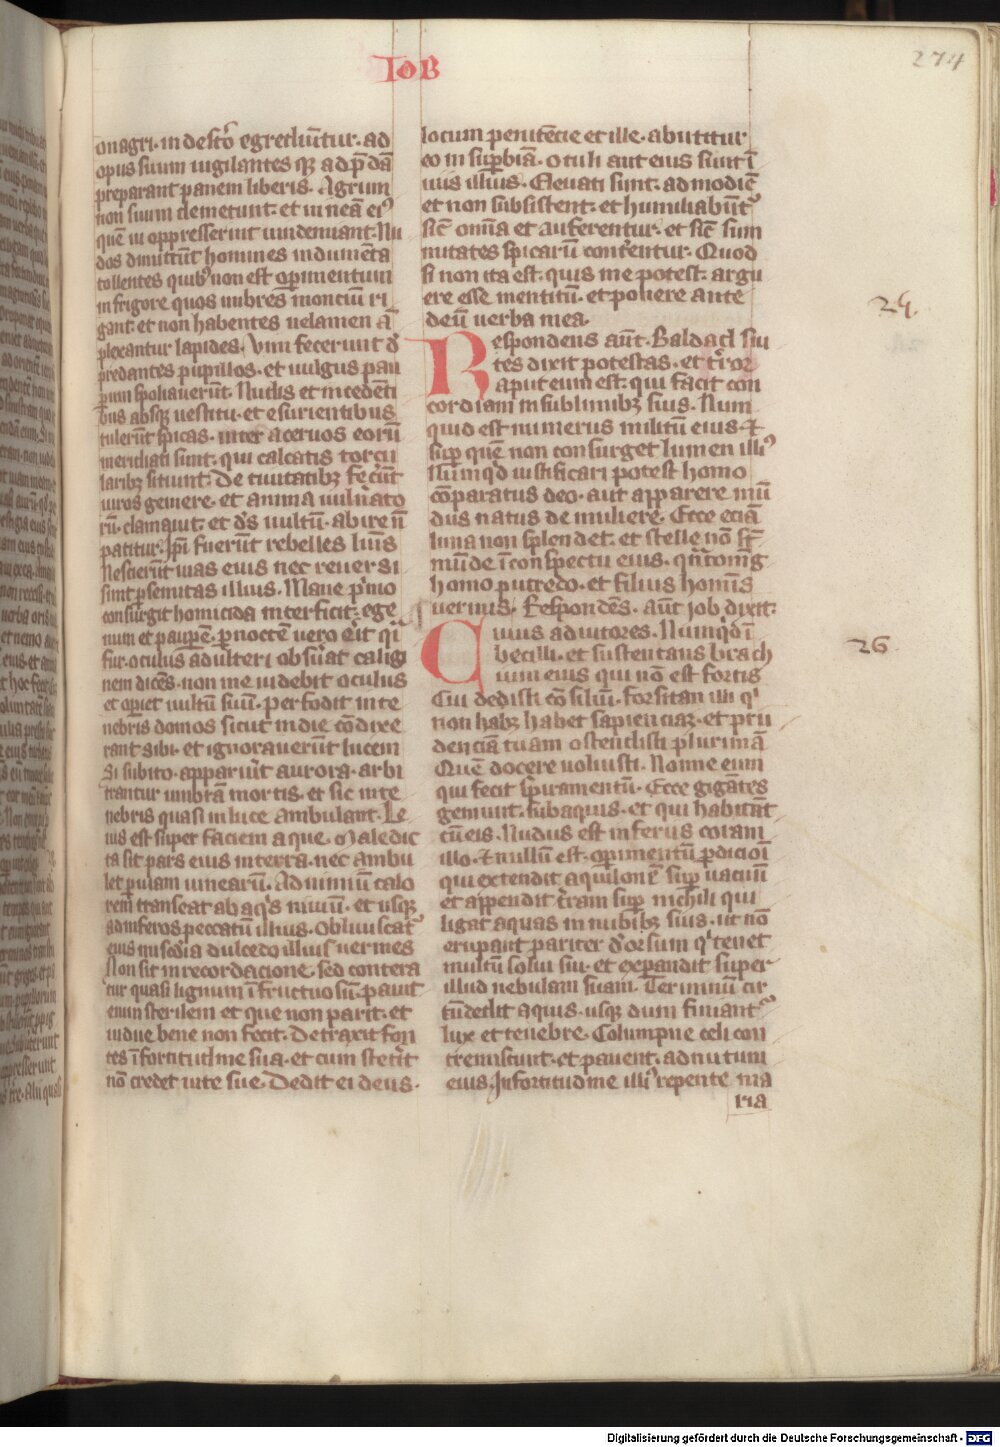 IOB
274
onagri. in desto egrediūtur. ad
opus suum uigilantes qꝫ ad p̄dā
preparant panem liberis. Agrum
non suum demetunt. et uineā eiꝰ
quē ui oppresserint uindemiant. Nu
dos dimittūt homines indumēta
tollentes quibꝰ non est operimentum
in frigore quos imbres montium ri
gant. et non habentes uelamen ā
plexantur lapides. Vim fecerunt de
predantes pupillos. et uulgus pau
perum spoliauerūt. Nudis et incedēti
bus absqꝫ uestitu. et esurientibus
tulerūt spicas. inter aceruos eorū
meridiati sunt. qui calcatis torcu
laribꝫ sitiunt. De ciuitatibꝫ fecerūt
uiros gemere. et anima uulnerato
rū. clamauit. et ds̄ inultū. abire n̄
patitur. Ipi fuerūt rebelles lumīs
Nescierūt uias eius nec reuersi
sunt per semitas illius. Mane primo
consurgit homicida interficit. ege
num et paupē. per noctem uero erit qsi
fur. oculus adulteri obseruat caligi
nem dicēs. non me uidebit oculus
et operiet uultū suū. Perfodit in te
nebris domos sicut in die cōdixe
rant sibi. et ignorauerūt lucem
Si subito. apparuerit aurora. arbi
trantur umbrā mortis. et sic in te
nebris quasi in luce ambulant. Le
uis est super faciem aque. Maledic
ta sit pars eius in terra. nec ambu
let per uiam uinearū. Ad nimiū calo
rem transeat ab aqis niuiū. et usqꝫ
ad inferos peccatū illius. Obliuiscatᷣ
eius miscdia dulcedo illius uermes
Non sit in recordacione. sed contera
tur quasi lignum īfructuosū. pauit
enim sterilem et que non parit. et
uidue bene non fecit. Detraxit for
tes ī fortitudine sua. et cum steterit
nō credet uite sue. Dedit ei deus.
locum penitēcie et ille. abutitur
eo in superbiā. oculi aut eius sunt ī
uiis illius. Eleuati sunt. ad modicū
et non subsistent. et humiliabūtᷣ
sict̄ omnia et auferentur. et sict̄ sum
mitates spicarū conterentur. Quod
si non ita est. quis me potest. argu
ere esse mentitū. et ponere ante
deū uerba mea.
24.
Respondens aūt. Baldach siu
tes dixit potestas. et terror
aput eum est. qui facit con
cordiam in sublimibꝫ suis. Num
quid est numerus militū eius. et
sup quē non consurget lumen illiꝰ
Numqd iustificari potest homo
cōparatus deo. aut apparere mū
dus natus de muliere. Ecce eciā
luna non splendet. et stelle nō st̄
mūde ī conspectu eius. qnto maḡ
homo putredo. et filius homis
uermis. Respondēs. aūt iob dixit.
26
Cuius adiutores. Numqd ī
becilli. et sustentans brach
ium eius qui nō est fortis
Cui dedisti cōsiliū. forsitan illi qi
non habꝫ habet sapienciaꝫ. et pru
denciā tuam ostendisti plurimā
Quē docere uoluisti. Nonne eum
qui fecit spiramentū. Ecce gigātes
gemunt. sub aquis. et qui habitāt
cū eis. Nudus est infernus coram
illo. et nullū est. operimentū perdicioī
qui extendit aquilonē sup uacuū
et appendit terram sup nichili qui
ligat aquas in nubibꝫ suis. ut nō
erupant pariter deorsum qi tenet
multū solii sui. et expandit super
illud nebulam suam. Terminū cir
cūdedit aquis. usqꝫ dum finiantᷣ
lux et tenebre. Columpne celi con
tremiscunt. et pauent. ad nutum
eius. In fortitudine illiꝰ repente ma
ria
Digitalisierung gefördert durch die Deutsche Forschungsgemeinschaft - DFG